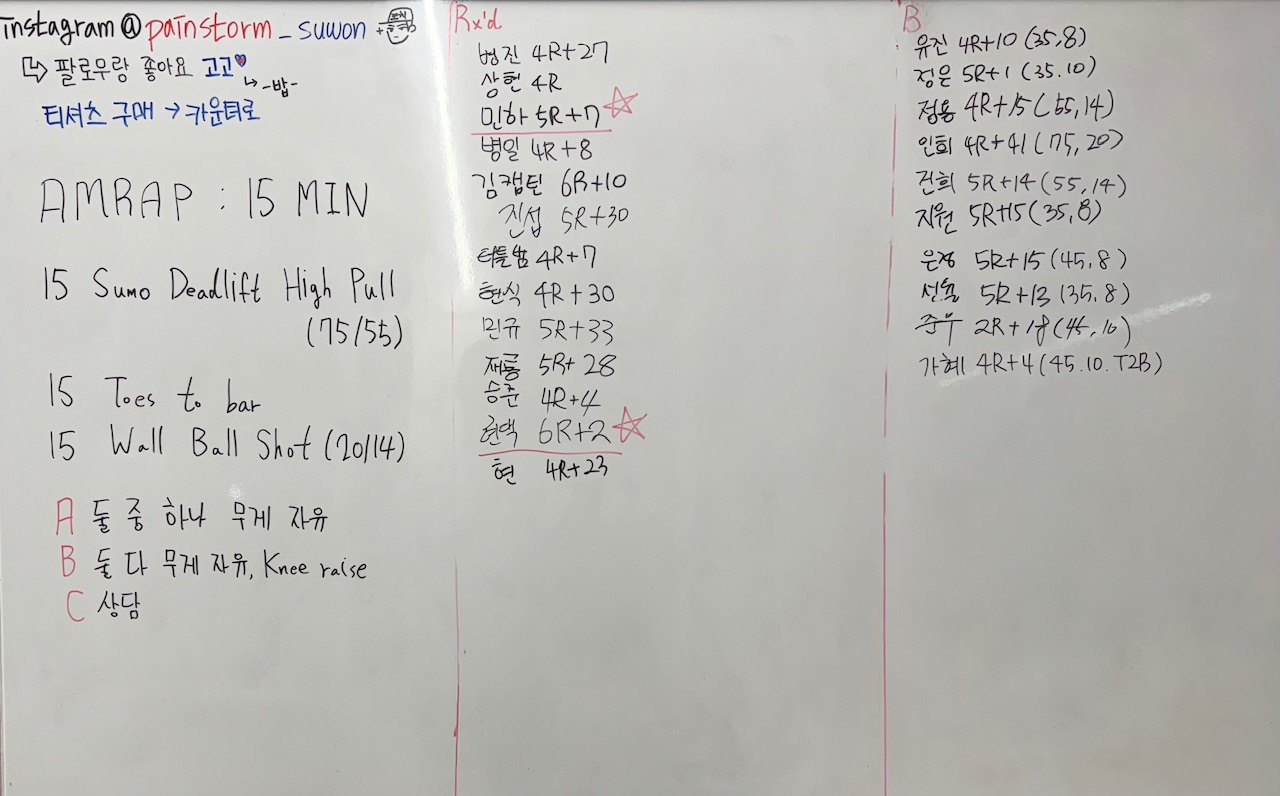 instagram@painstorm_suwon
팔로우랑 좋아요 고고
-밥-
티셔츠 구매 → 카운터로
AMRAP : 15 MIN
15 Sumo Deadlift High Pull
(75/55)
15 Toes to bar
15 Wall Ball Shot (20/14)
A 둘 중 하나 무게 자유
B 둘 다 무게 자유, Knee raise
C 상담
Rx'd
병진 4R+27
상현 4R
민하 5R+7
병일 4R+8
김캡틴 6R+10
진섭 5R+30
터틀맘 4R+7
현식 4R+30
민규 5R+33
재룡 5R+28
승준 4R+4
6R+2
현 4R+23
B
유진 4R+10 (35,8)
정은 5R+1 (35.10)
정용 4R+15 (55,14)
인희 4R+41 (75,20)
건희 5R+14 (55,14)
지원 5R+15 (35,8)
은정 5R+15 (45,8)
5R+13 (35.8)
준우 2R+18 (45,10)
가혜 4R+4 (45.10.T2B)